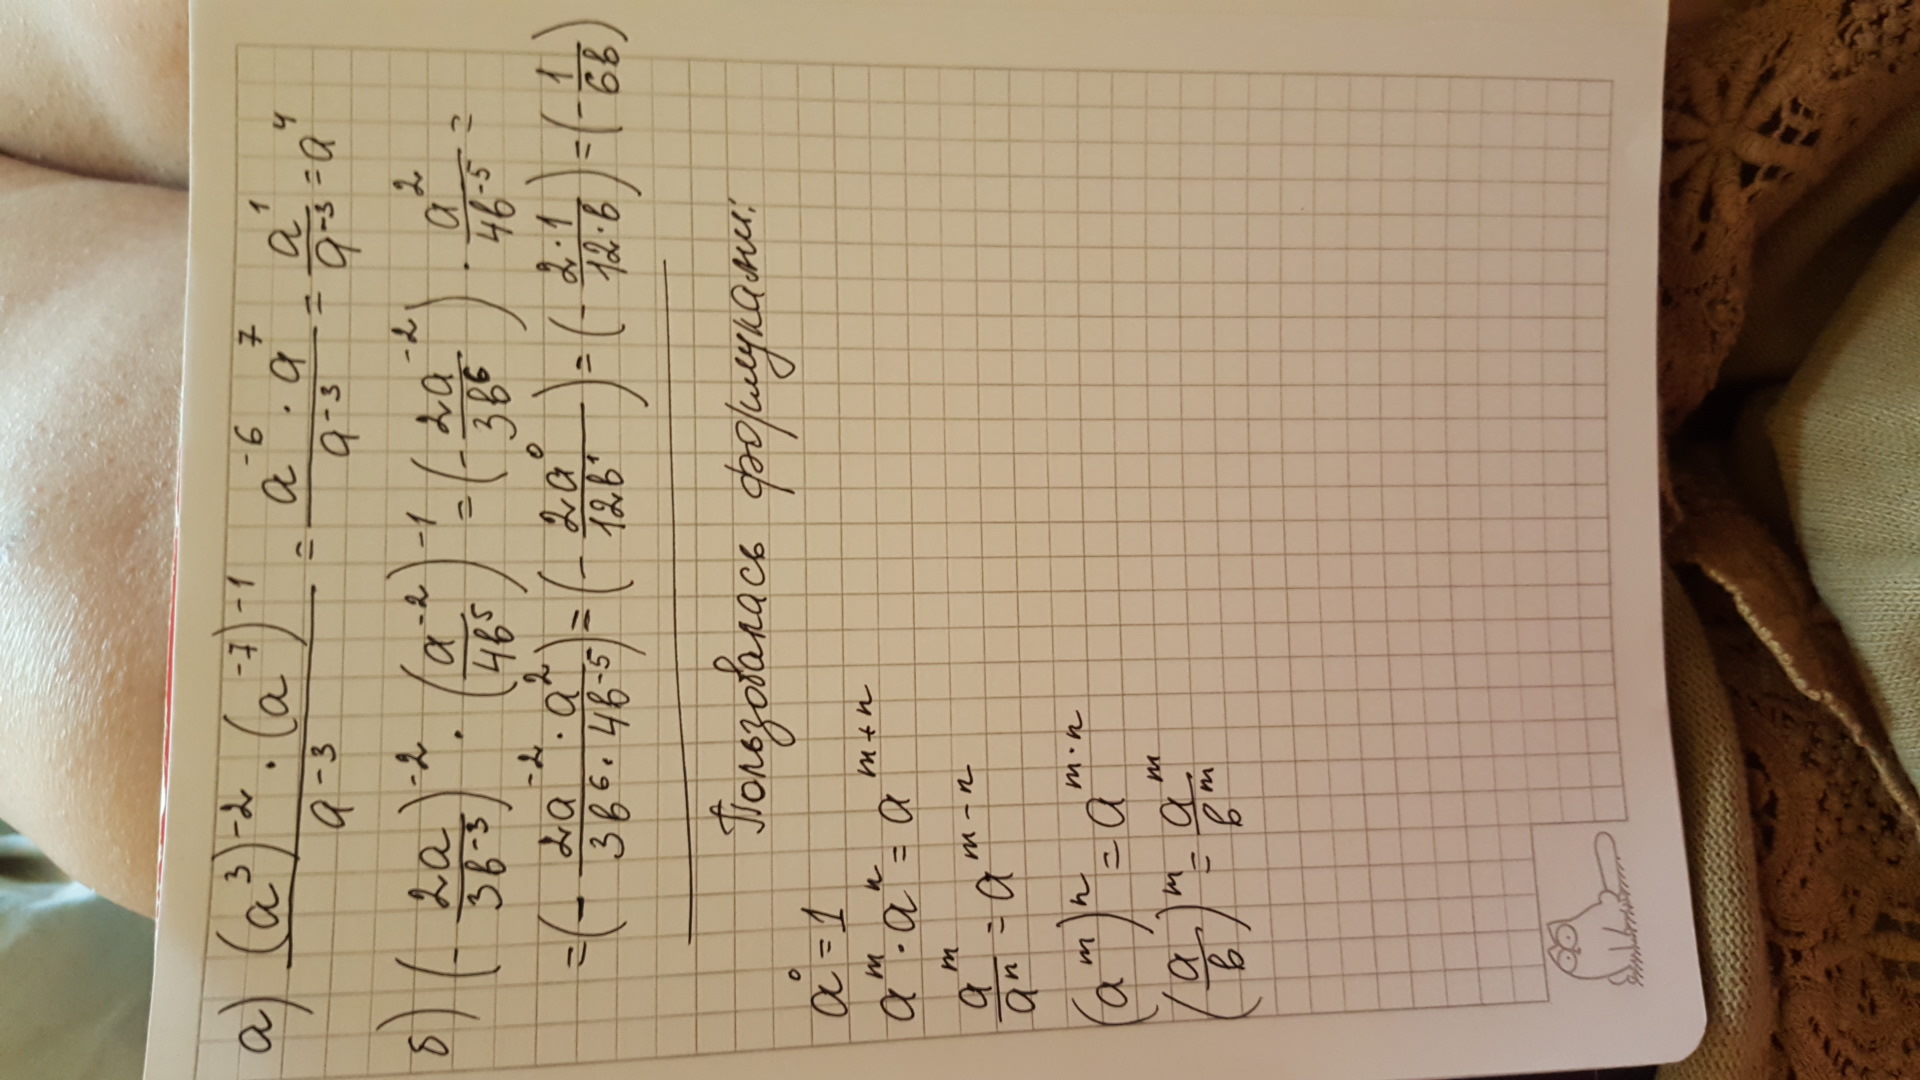 а) ((a^3)^-2 · (a^-7)^-1)/a^-3 = (a^-6 · a^7)/a^-3 = a^1/a^-3 = a^4
б) (- 2a/3в^-3)^-2 · (a^-2/4в^5)^-1 = (- 2a^-2/3в^6) · a^2/4в^-5 =
= (- (2a^-2 · a^2)/(3в^6 · 4в^-5)) = (- 2a^0/12в^1) = (- 2·1/12·в) = (- 1/6в)
Пользовалась формулами:
a^0 = 1
a^m · a^n = a^m+n
a^m/a^n = a^m-n
(a^m)^n = a^m·n
(a/в)^m = a^m/в^m